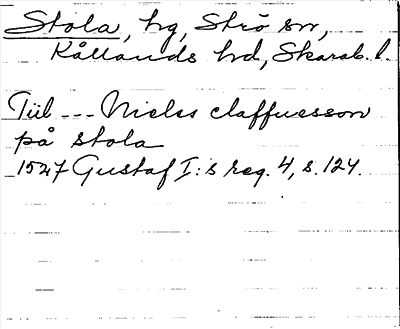 Stola, hg, Strö sn,
Kållands hd, Skarab. l.
Till --- Nielss claffuesson
på stola
1527 Gustaf I:s reg. 4, s. 124.